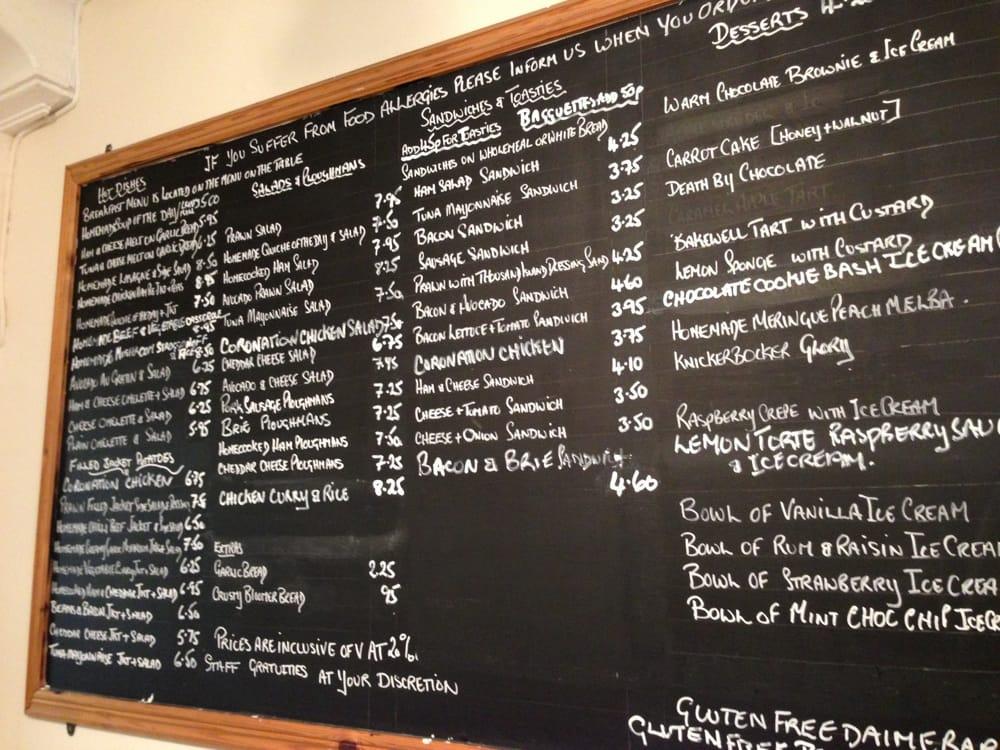 IF YOU SUFFER FROM FOOD ALLERGIES PLEASE INFORM US WHEN YOU ORDER
HOT DISHES
BREAKFAST MENU IS LOCATED ON THE MENU ON THE TABLE
HOMEMADE SOUP OF THE DAY 5.00
HAM & CHEESE MELT ON GARLIC BREAD 5.95
TUNA & CHEESE MELT ON GARLIC BREAD 6.25
HOMEMADE LASAGNE & SIDE SALAD 8.50
HOMEMADE CHICKEN HAM PIE 8.95
HOMEMADE QUICHE OF THE DAY + JKT 7.50
HOMEMADE BEEF & VEGETABLE CASSEROLE 8.95
HOMEMADE MUSHROOM STROGANOFF & RICE 8.50
AVOCADO AU GRATIN & SALAD 6.25
HAM & CHEESE OMELETTE & SALAD 6.75
CHEESE OMELETTE & SALAD 6.25
PLAIN OMELETTE & SALAD 5.95
FILLED JACKET POTATOES
CORONATION CHICKEN 6.75
PRAWN FILLED JACKET 7.5
HOMEMADE CHILLI BEEF JACKET & SIDE SALAD 6.50
HOMEMADE CREAMY GARLIC MUSHROOM JKT + SALAD 7.50
HOMEMADE VEGETABLE CURRY JKT + SALAD 6.25
HOMECOOKED HAM & CHEDDAR JKT + SALAD 6.95
BEANS & BACON JKT + SALAD 6.50
CHEDDAR CHEESE JKT + SALAD 5.75
TUNA MAYONNAISE JKT + SALAD 6.50
SALADS & PLOUGHMANS
PRAWN SALAD 7.95
HOMEMADE QUICHE OF THE DAY & SALAD 7.50
HOMECOOKED HAM SALAD 7.95
AVOCADO PRAWN SALAD 8.25
TUNA MAYONNAISE SALAD 7.50
CORONATION CHICKEN SALAD 7.50
CHEDDAR CHEESE SALAD 6.75
AVOCADO & CHEESE SALAD 7.45
PORK SAUSAGE PLOUGHMANS 7.25
BRIE PLOUGHMANS 7.25
HOMECOOKED HAM PLOUGHMANS 7.50
CHEDDAR CHEESE PLOUGHMANS 7.25
CHICKEN CURRY & RICE 8.25
EXTRAS
GARLIC BREAD 2.25
CRUSTY BLOOMER BREAD 95
PRICES ARE INCLUSIVE OF VAT 20%.
STAFF GRATUITIES AT YOUR DISCRETION
SANDWICHES & TOASTIES
ADD 45p FOR TOASTIES BAGGUETTES ADD 50p
SANDWICHES ON WHOLEMEAL OR WHITE BREAD
HAM SALAD SANDWICH 4.25
TUNA MAYONNAISE SANDWICH 3.75
BACON SANDWICH 3.25
SAUSAGE SANDWICH 3.25
PRAWN WITH THOUSAND ISLAND DRESSING SAND 4.25
BACON & AVOCADO SANDWICH 4.60
BACON LETTUCE + TOMATO SANDWICH 3.95
CORONATION CHICKEN 3.75
HAM & CHEESE SANDWICH 4.10
CHEESE + TOMATO SANDWICH 3.50
CHEESE + ONION SANDWICH 3.50
BACON & BRIE SANDWICH 4.60
DESSERTS
WARM CHOCOLATE BROWNIE & ICE CREAM
CARROT CAKE [HONEY + WALNUT]
DEATH BY CHOCOLATE
CARAMEL APPLE TART
BAKEWELL TART WITH CUSTARD
LEMON SPONGE WITH CUSTARD
CHOCOLATE COOKIE BASH ICE CREAM
HOMEMADE MERINGUE PEACH MELBA.
KNICKERBOCKER GLORY
RASPBERRY CREPE WITH ICE CREAM
LEMON TORTE RASPBERRY SAU
& ICE CREAM.
BOWL OF VANILLA ICE CREAM
BOWL OF RUM & RAISIN ICE CREA
BOWL OF STRAWBERRY ICE CREA
BOWL OF MINT CHOC CHIP ICE C
GLUTEN FREE DAIME BA
GLUTEN FREE